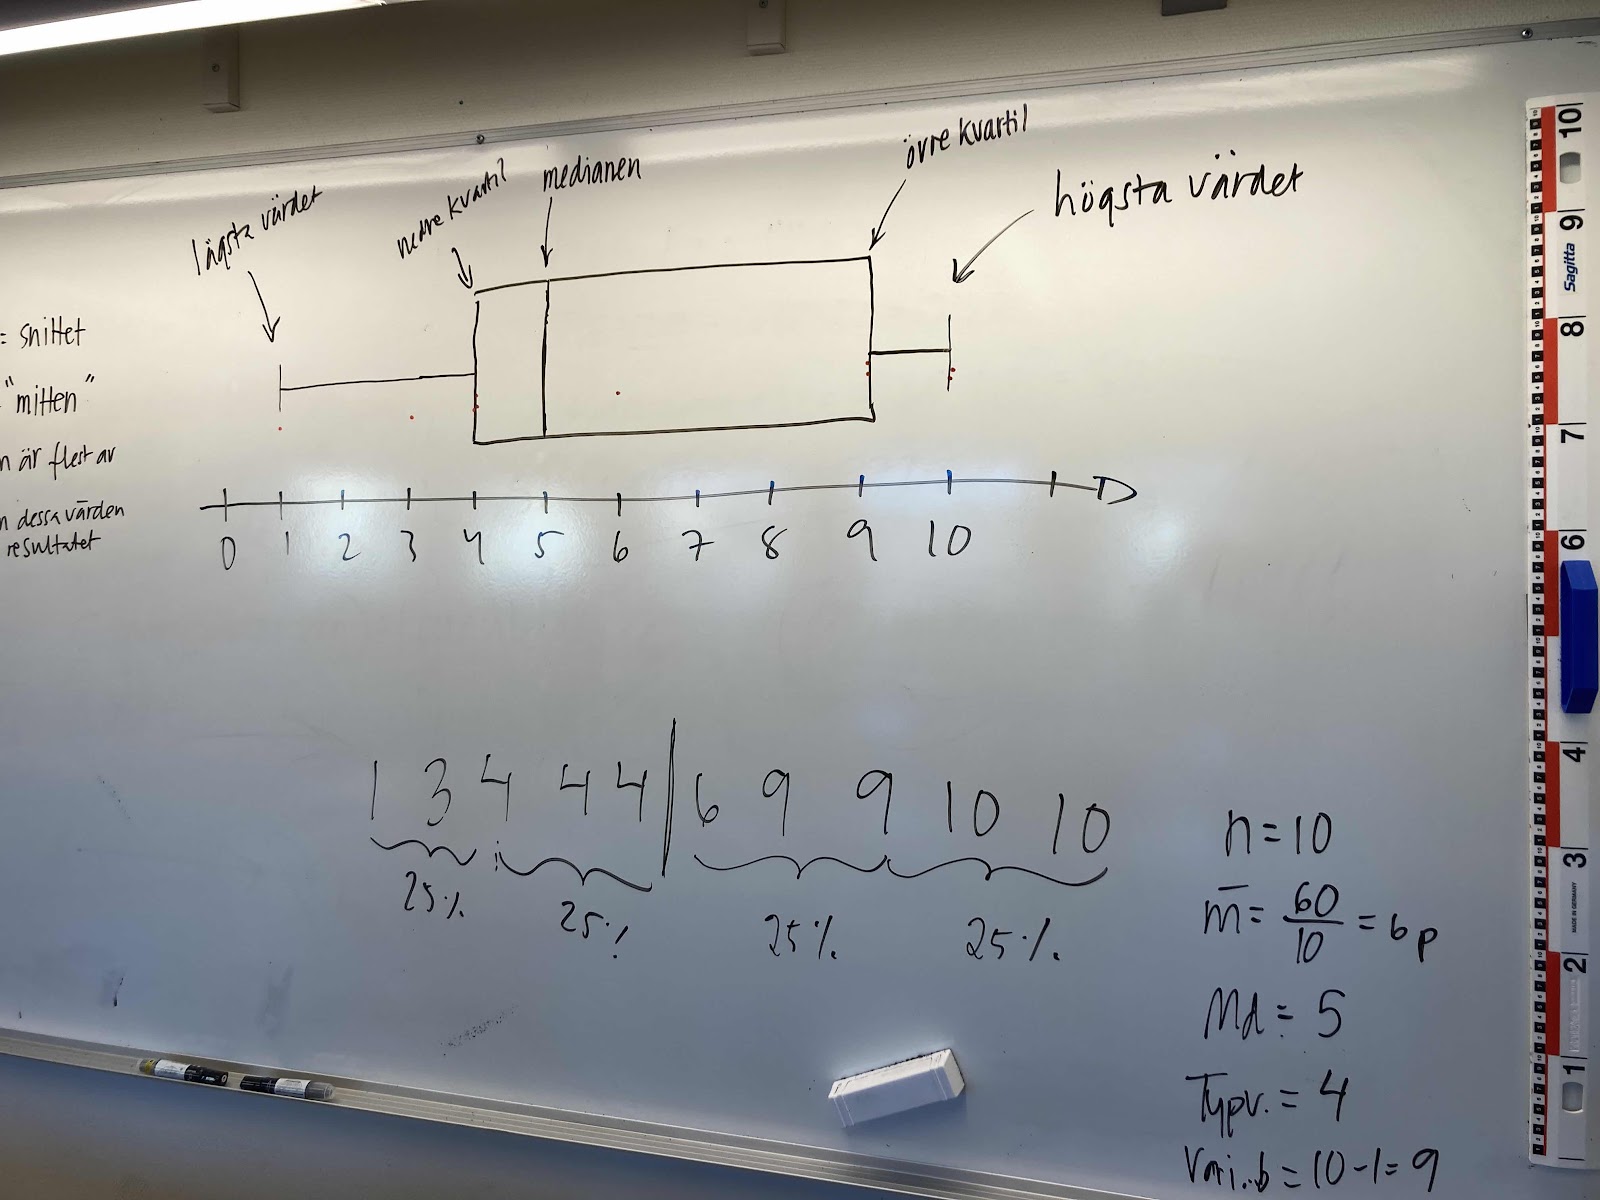 lägsta värdet
nedre kvartil
medianen
övre kvartil
högsta värdet
= snittet
"mitten"
n är flest av
n dessa värden
resultatet
0 1 2 3 4 5 6 7 8 9 10
1 3 4 4 4 | 6 9 9 10 10
25% 25% 25% 25%
n = 10
m̄ = 60/10 = 6 p
Md = 5
Typv. = 4
Vari.b = 10 - 1 = 9
10
9
Sagitta
8
7
6
4
3
MADE IN GERMANY
2
1